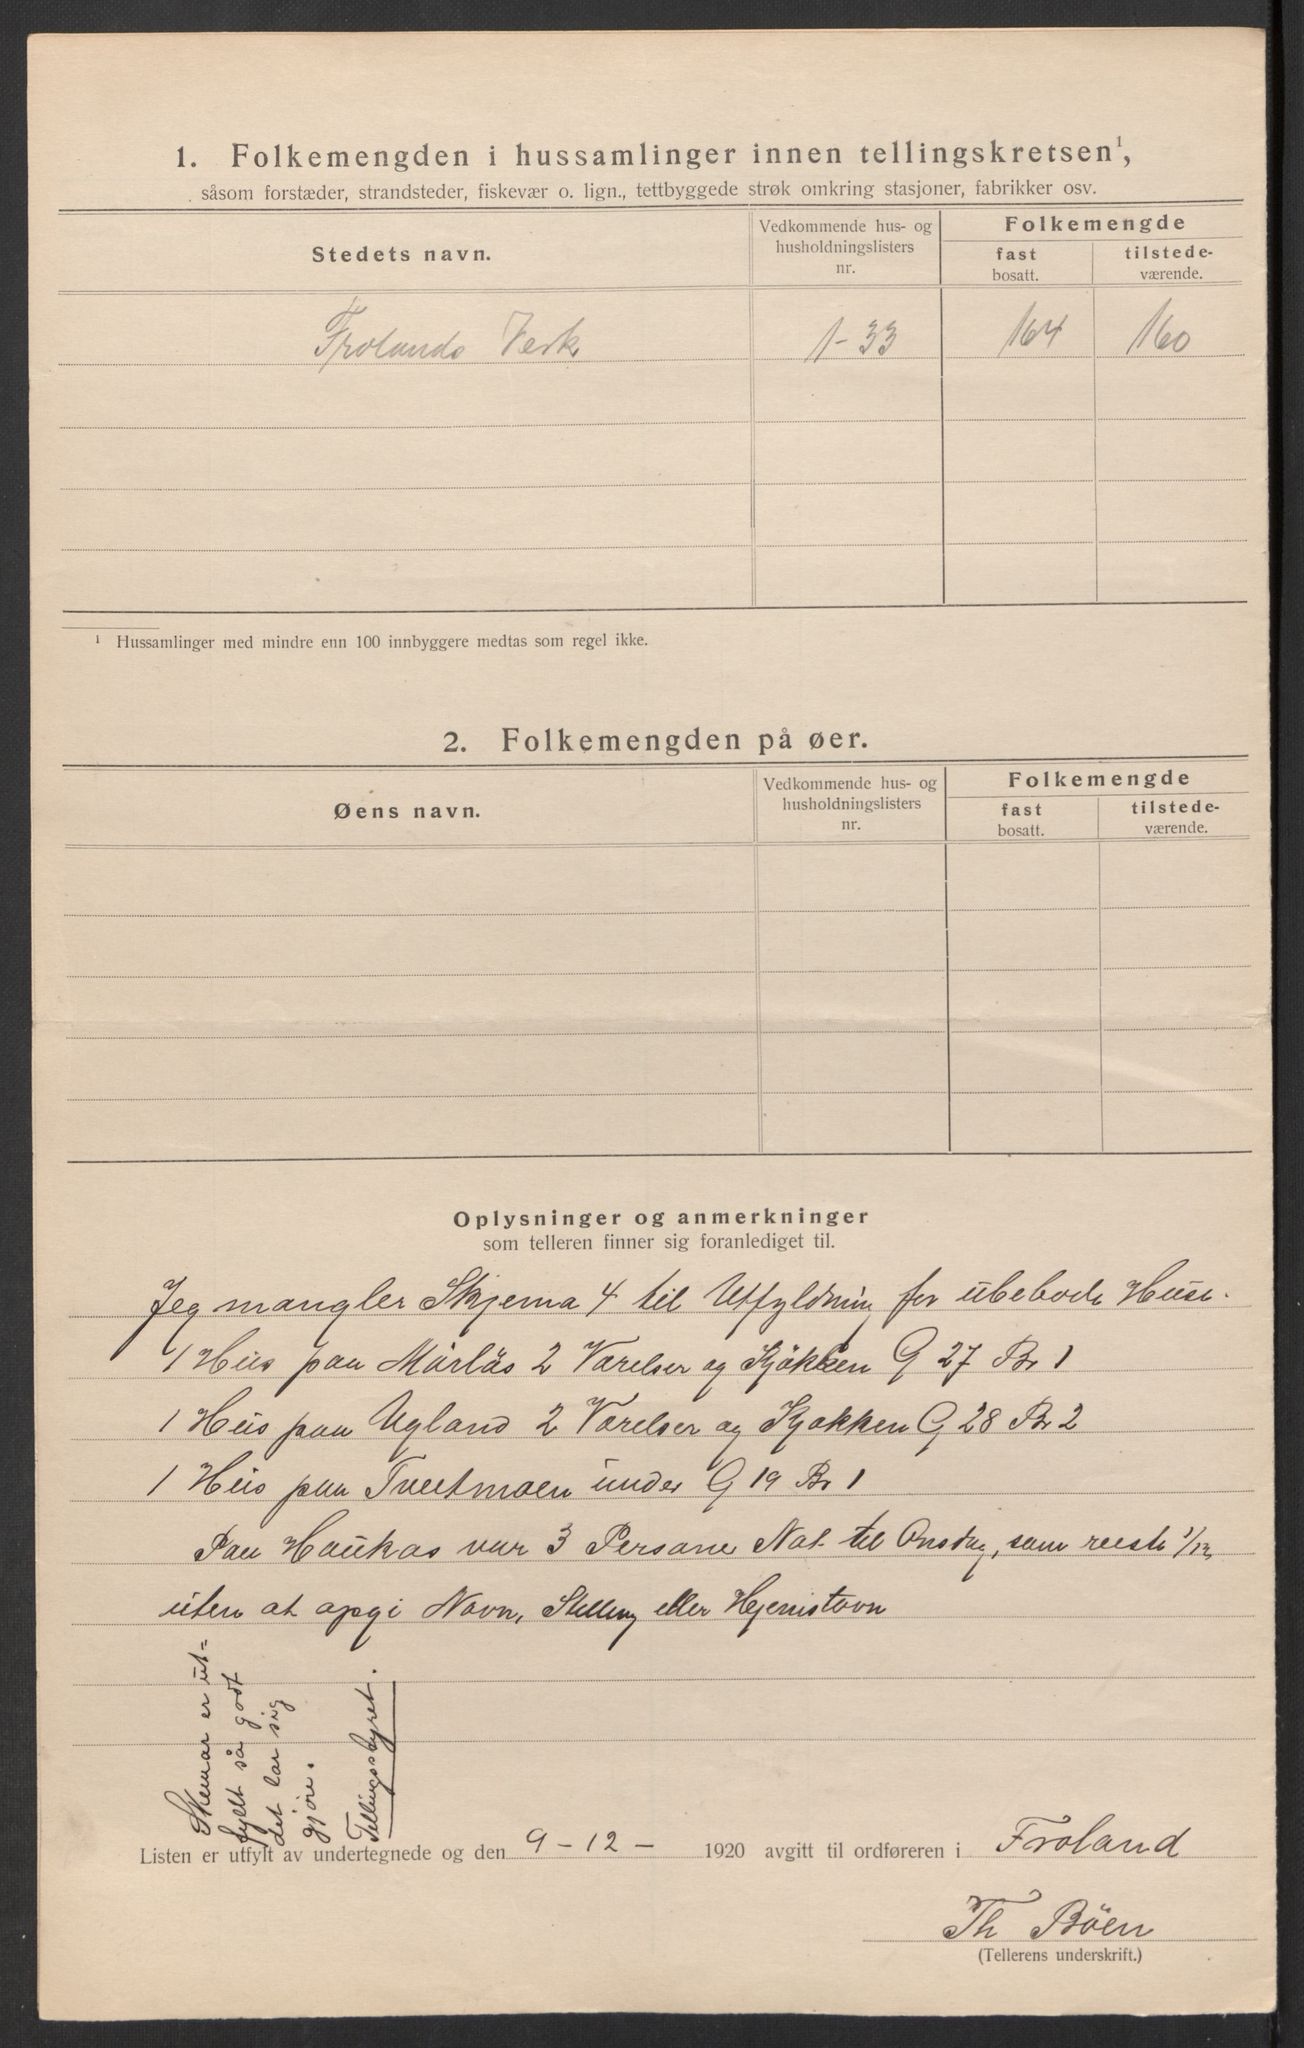 1. Folkemengden i hussamlinger innen tellingskretsen¹,
såsom forstæder, strandsteder, fiskevær o. lign., tettbyggede strøk omkring stasjoner, fabrikker osv.
Stedets navn.
Vedkommende hus- og
husholdningslisters
nr.
Folkemengde
fast
bosatt.
tilstede-
værende.
Frolands Verk 1-33 164 160
¹ Hussamlinger med mindre enn 100 innbyggere medtas som regel ikke.
2. Folkemengden på øer.
Øens navn.
Vedkommende hus- og
husholdningslisters
nr.
Folkemengde
fast
bosatt.
tilstede-
værende.
Oplysninger og anmerkninger
som telleren finner sig foranlediget til.
Jeg mangler Skjema 4 til Utfyldning for ubebode Huse.
1 Hus paa Mörlös 2 Værelser og Kjökken G 27 Br 1
1 Hus paa Ugland 2 Værelser og Kjøkken G 28 Br 2
1 Hus paa Tveitmoen under G 19 Br 1
Paa Haukas var 3 Persone Nat til Onsdag, som reiste 1/12,
uten at opgi Navn, Stilling eller Hjemstavn
Skemar er ut-
fyllt så godt
det lar sig
gjöre.
Tellingsstyret.
Listen er utfylt av undertegnede og den 9-12- 1920 avgitt til ordføreren i Froland
Th Böen
(Tellerens underskrift.)